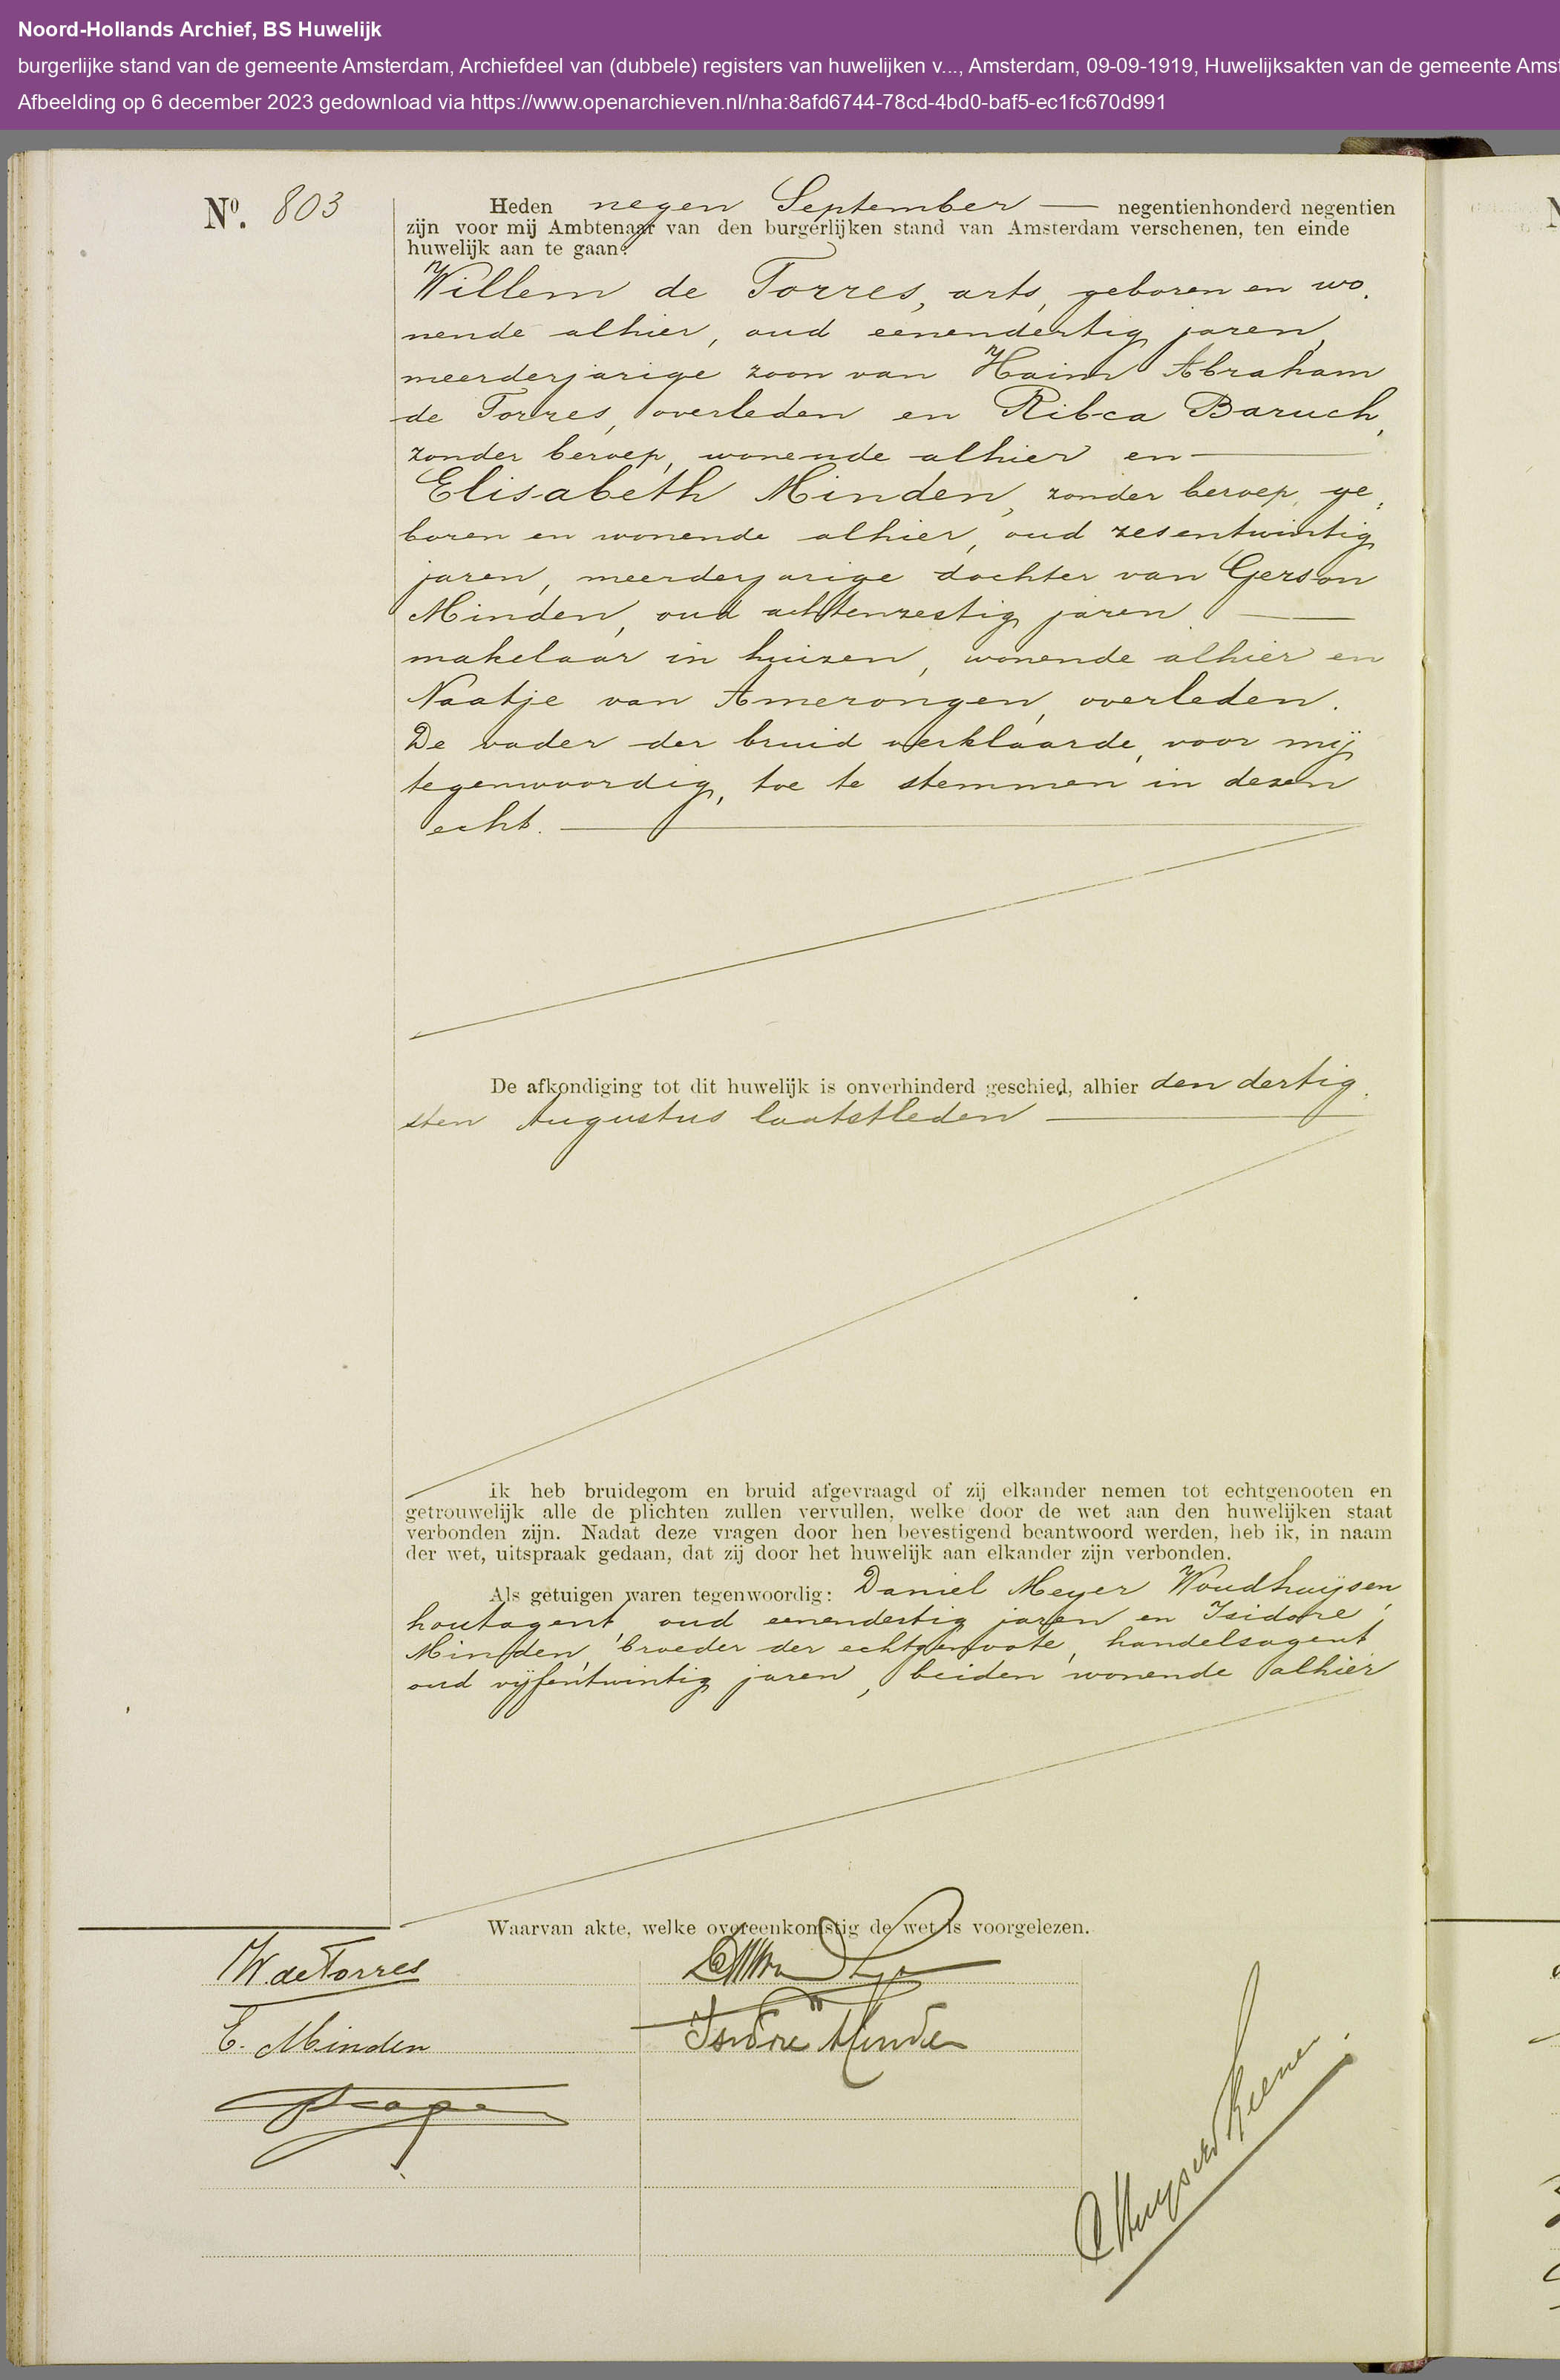 Noord-Hollands Archief, BS Huwelijk
burgerlijke stand van de gemeente Amsterdam, Archiefdeel van (dubbele) registers van huwelijken v..., Amsterdam, 09-09-1919, Huwelijksakten van de gemeente Amst
Afbeelding op 6 december 2023 gedownload via https://www.openarchieven.nl/nha:8afd6744-78cd-4bd0-baf5-ec1fc670d991
No. 803
Heden negen September — negentienhonderd negentien
zijn voor mij Ambtenaar van den burgerlijken stand van Amsterdam verschenen, ten einde
huwelijk aan te gaan:
Willem de Torres, arts, geboren en wo,
nende alhier, oud eenendertig jaren,
meerderjarige zoon van Haim Abraham
de Torres, overleden en Ribca Baruch,
zonder beroep, wonende alhier en —
Elisabeth Minden, zonder beroep, ge,
boren en wonende alhier, oud zesentwintig
jaren, meerderjarige dochter van Gerson
Minden, oud achtenzestig jaren —
makelaar in huizen, wonende alhier en
Naatje van Amerongen, overleden.
De vader der bruid verklaarde, voor mij
tegenwoordig, toe te stemmen in dezen
echt. —
De afkondiging tot dit huwelijk is onverhinderd geschied, alhier den dertig,
sten Augustus laatstleden —
Ik heb bruidegom en bruid afgevraagd of zij elkander nemen tot echtgenooten en
getrouwelijk alle de plichten zullen vervullen, welke door de wet aan den huwelijken staat
verbonden zijn. Nadat deze vragen door hen bevestigend beantwoord werden, heb ik, in naam
der wet, uitspraak gedaan, dat zij door het huwelijk aan elkander zijn verbonden.
Als getuigen waren tegenwoordig: Daniel Meyer Woudhuijsen,
houtagent, oud eenendertig jaren en Isidore
Minden, broeder der echtgenoote, handelsagent,
oud vijfentwintig jaren, beiden wonende alhier
Waarvan akte, welke overeenkomstig de wet is voorgelezen.
W. de Torres
E. Minden
Isidore Minden